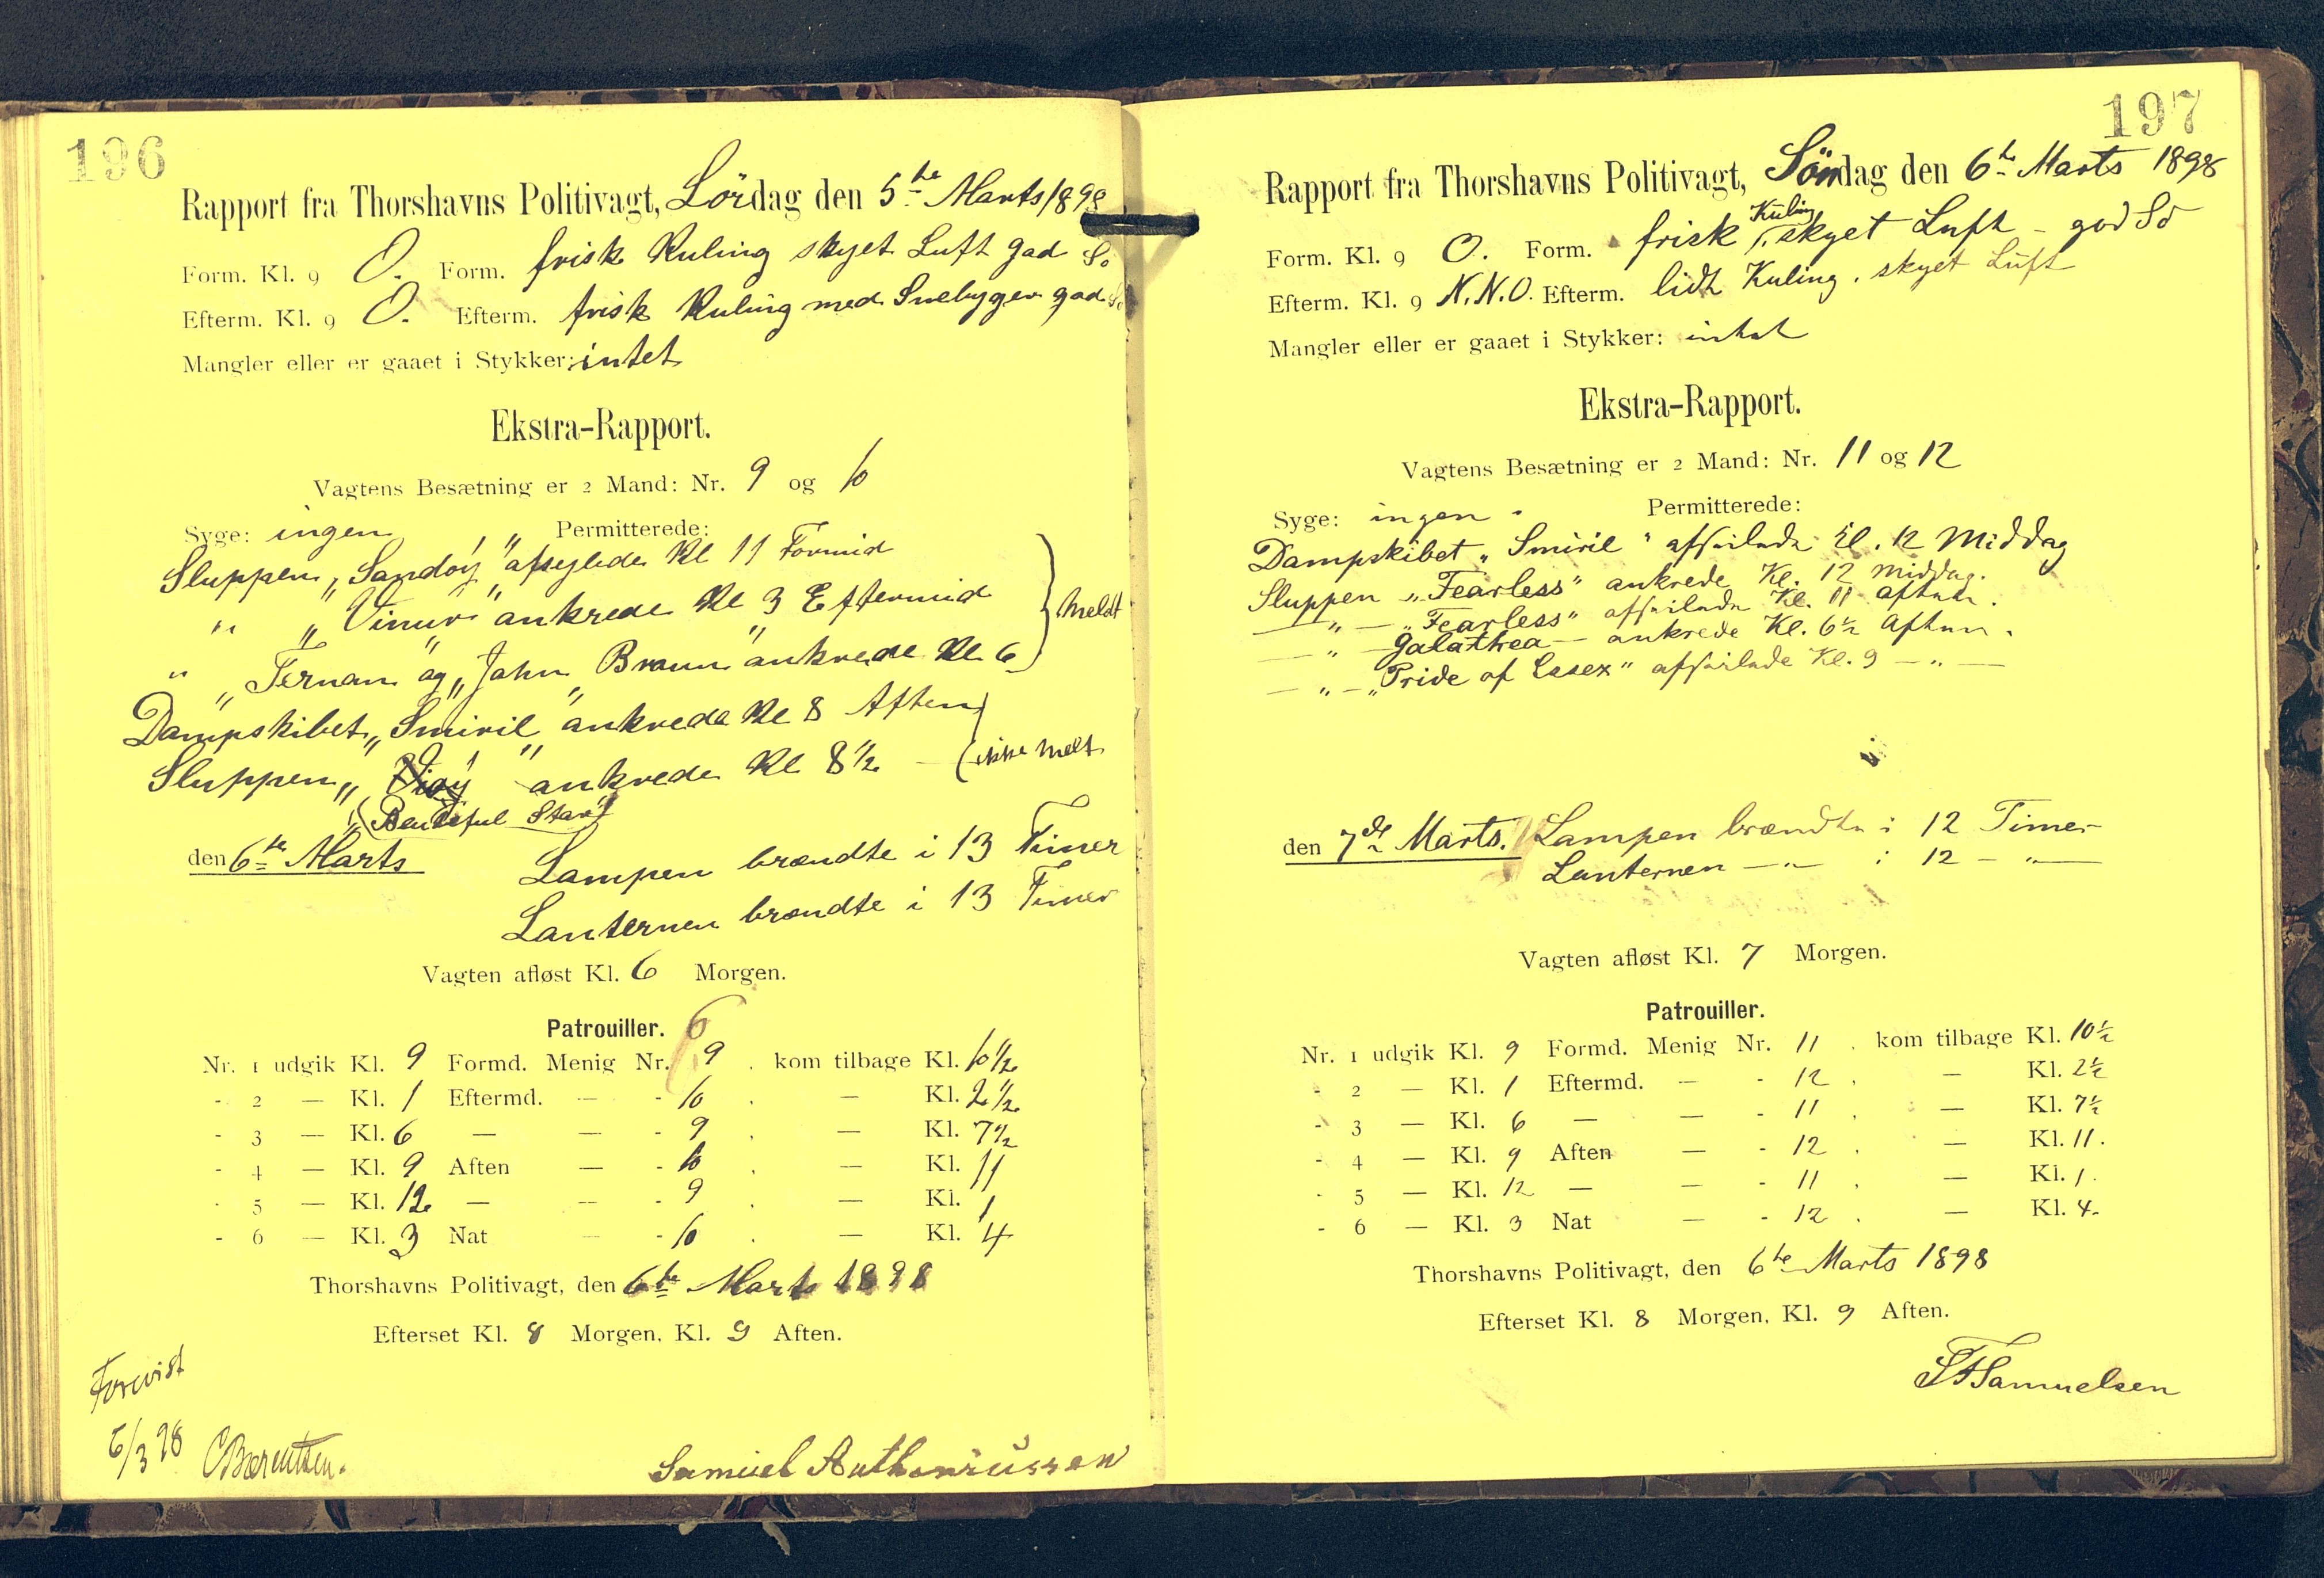 196
Rapport fra Thorshavns Politivagt, Lördag den 5te Marts 1898
Form. Kl. 9 O. Form. frisk Kuling skyet Luft god So
Efterm. Kl. 9 O. Efterm. frisk Kuling med Snebyger god So
Mangler eller er gaaet i Stykker: intet
Ekstra-Rapport.
Vagtens Besætning er 2 Mand: Nr. 9 og 10
Syge: ingen Permitterede:
Sluppen „Sandöy" afsejlede Kl 11 Formid
" „Vinur" ankrede Kl 3 Eftermid
" „Ternan" og „John Braun" ankrede Kl 6
Meldt
Dampskibet „Smiril" ankrede Kl 8 Aften
Sluppen „ ankrede Kl 8½
ikke Melt
„(Beutiful Star)"
den 6te Marts Lampen brændte i 13 Timer
Lanternen brændte i 13 Timer
Vagten afløst Kl. 6 Morgen.
Patrouiller. 6
Nr. 1 udgik Kl. 9 Formd. Menig Nr. 9 . kom tilbage Kl. 10½
- 2 — Kl. 1 Eftermd. — - 10 . — Kl. 2½
- 3 — Kl. 6 — — - 9 . — Kl. 7½
- 4 — Kl. 9 Aften — - 10 . — Kl. 11
- 5 — Kl. 12 — — - 9 . — Kl. 1
- 6 — Kl. 3 Nat — - 10 . — Kl. 4
Thorshavns Politivagt, den 6te Marts 1898
Efterset Kl. 8 Morgen, Kl. 9 Aften.
Forevist
6/3 98 CBærentsen.
Samuel Anthoniussen
197
Rapport fra Thorshavns Politivagt, Söndag den 6te Marts 1898
Form. Kl. 9 O. Form. frisk Kuling, skyet Luft – god Sö
Efterm. Kl. 9 N.N.O. Efterm. lidt Kuling, skyet Luft
Mangler eller er gaaet i Stykker: intet
Ekstra-Rapport.
Vagtens Besætning er 2 Mand: Nr. 11 og 12
Syge: ingen. Permitterede:
Dampskibet „Smiril" afseilede Kl. 12 Middag
Sluppen „Fearless" ankrede Kl. 12 Middag.
— " — „Fearless" afseilede Kl. 11 Aften.
— " — Galathea — ankrede Kl. 6½ Aften.
— " — „Pride of Essex" afseilede Kl. 9 — " —
den 7de Marts. Lampen brændte i 12 Timer
Lanternen — " — i 12 — " —
Vagten afløst Kl. 7 Morgen.
Patrouiller.
Nr. 1 udgik Kl. 9 Formd. Menig Nr. 11 . kom tilbage Kl. 10½
- 2 — Kl. 1 Eftermd. — - 12 . — Kl. 2½
- 3 — Kl. 6 — — - 11 . — Kl. 7½
- 4 — Kl. 9 Aften — - 12 . — Kl. 11.
- 5 — Kl. 12 — — - 11 . — Kl. 1.
- 6 — Kl. 3 Nat — - 12 . — Kl. 4.
Thorshavns Politivagt, den 6te Marts 1898
Efterset Kl. 8 Morgen, Kl. 9 Aften.
Samuelsen